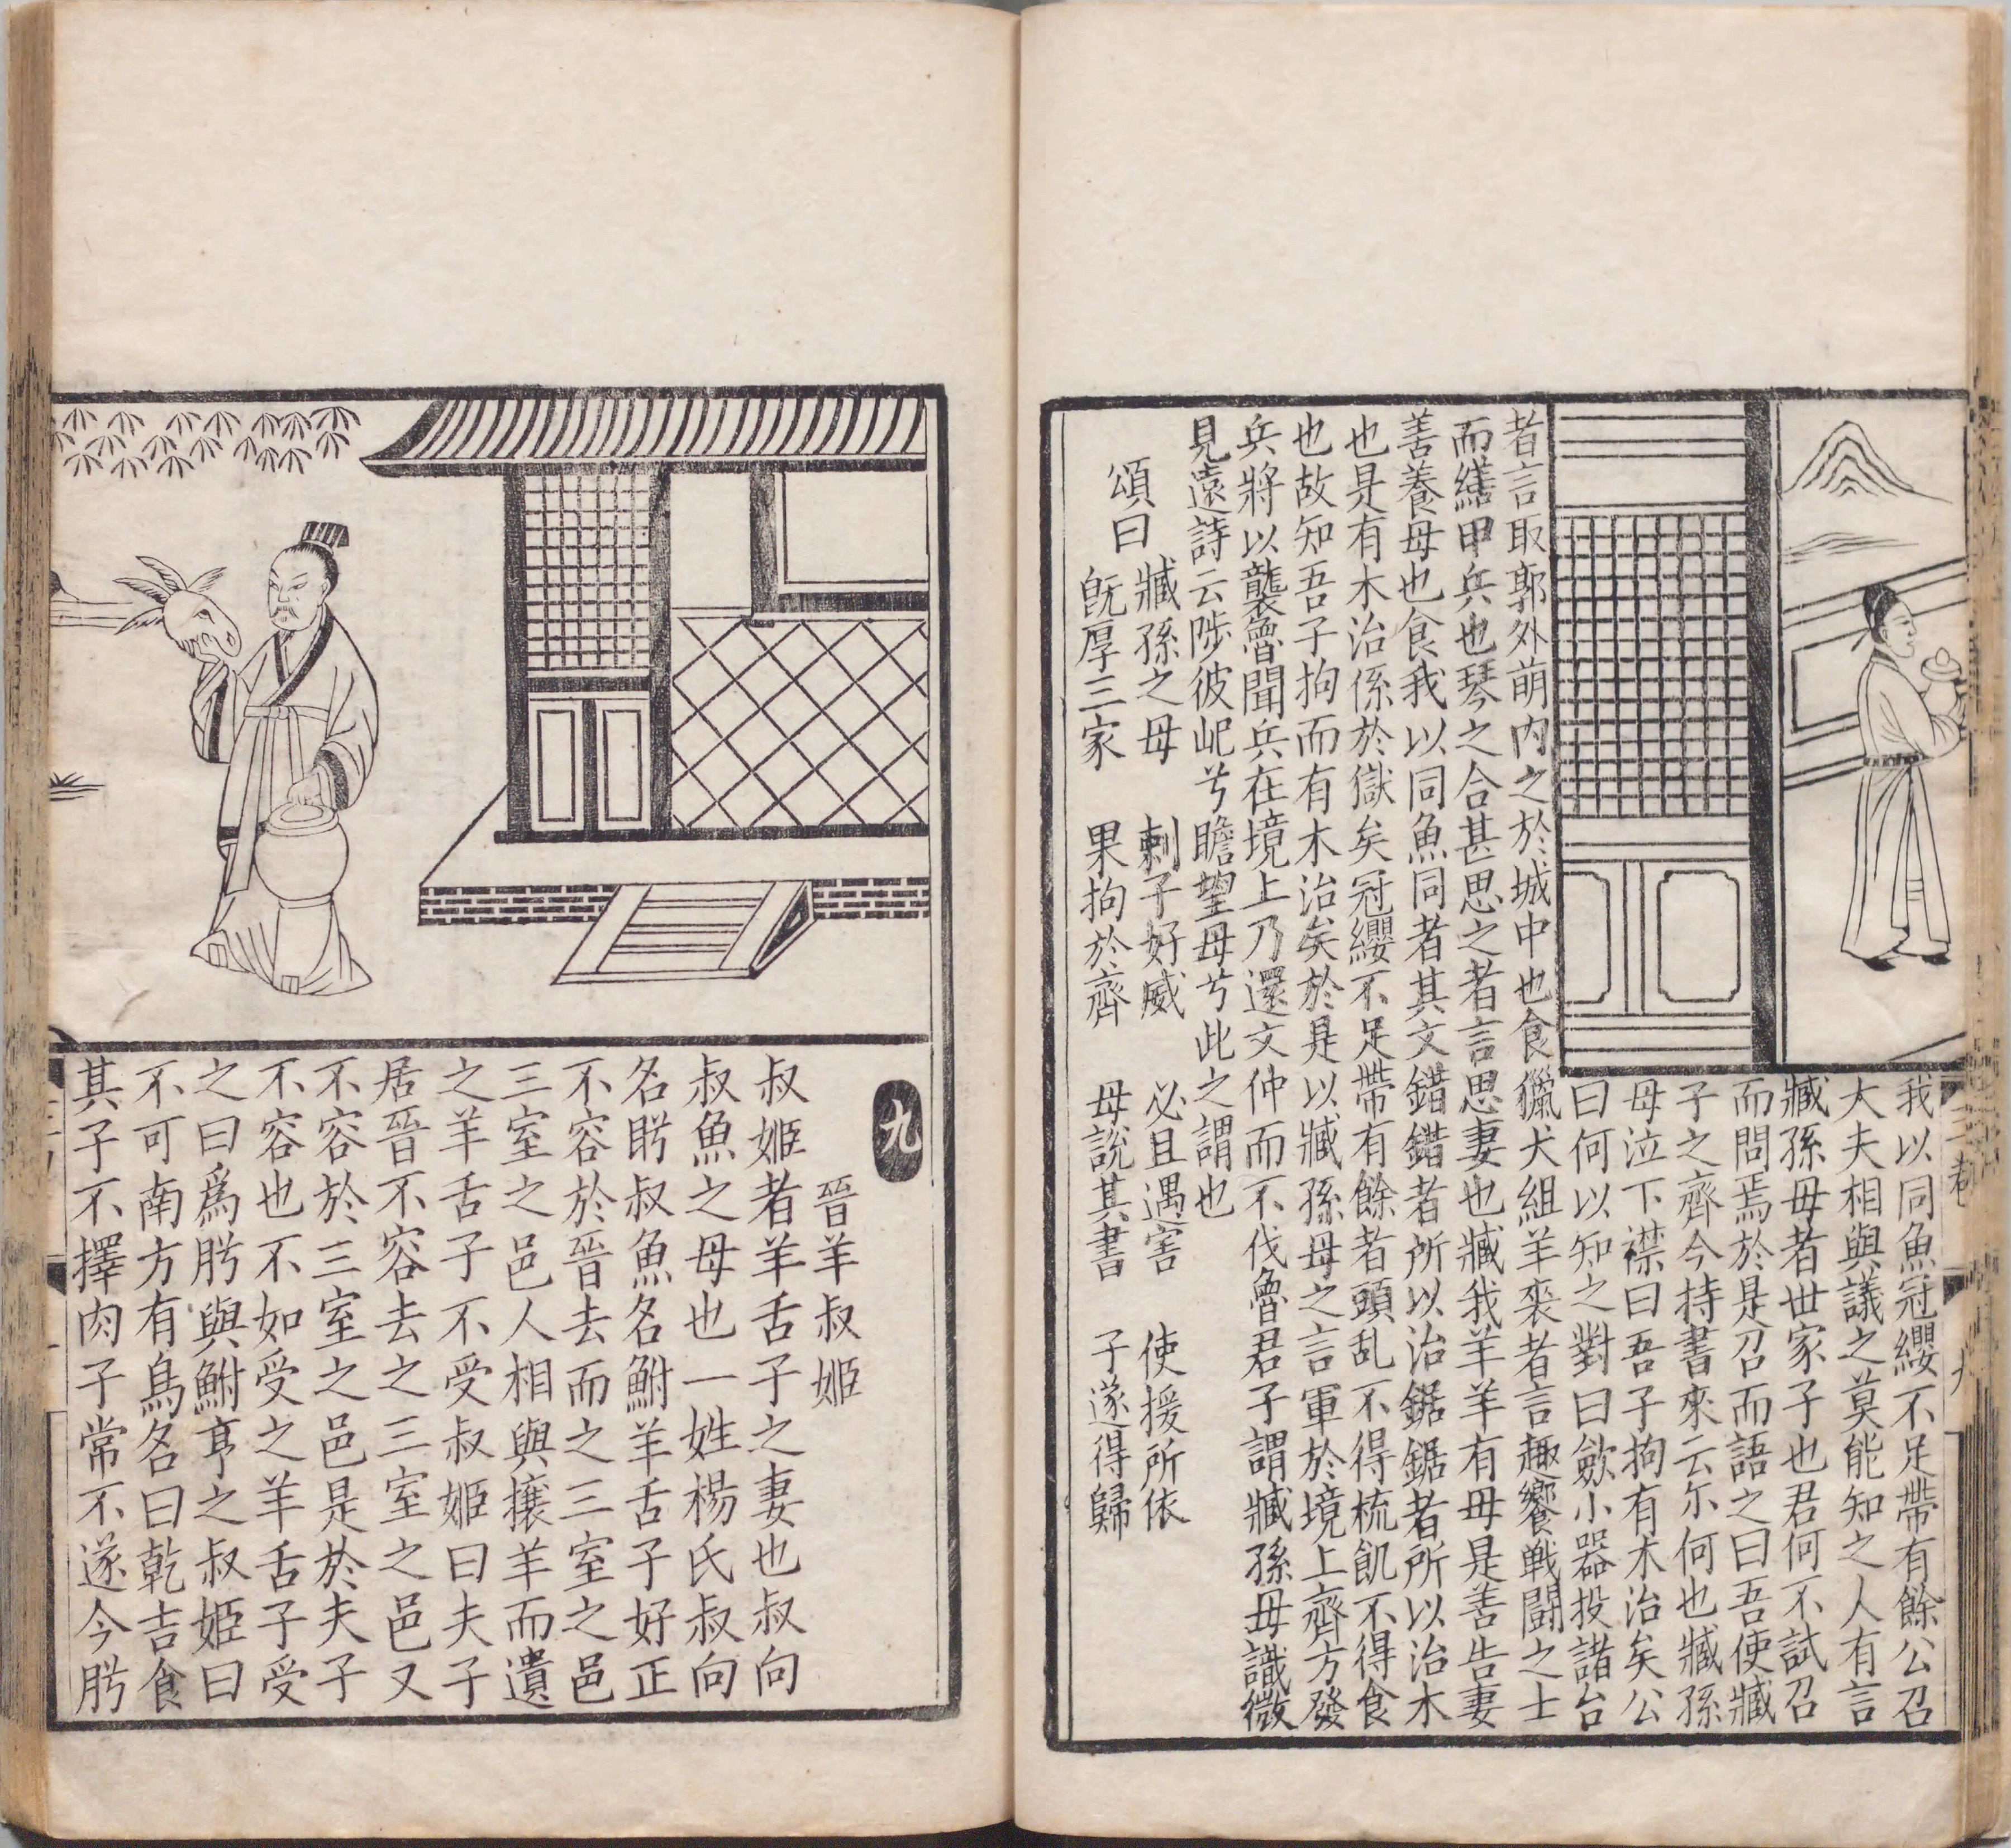 我以同魚冠纓不足帶有餘公召
大夫相與議之莫能知之人有言
臧孫母者世家子也君何不試召
而問焉於是召而語之曰吾使臧
子之齊今持書來云尓何也臧孫
母泣下襟曰吾子拘有木治矣公
曰何以知之對曰歛小器投諸台
者言取郭外萌内之於城中也食獵犬組羊裘者言趣饗戦鬪之士
而繕甲兵也琴之合甚思之者言思妻也臧我羊羊有母是善告妻
善養母也食我以同魚同者其文錯錯者所以治鋸鋸者所以治木
也是有木治係於獄矣冠纓不足帶有餘者頭乱不得梳飢不得食
也故知吾子拘而有木治矣於是以臧孫母之言軍於境上齊方發
兵將以襲魯聞兵在境上乃還文仲而不伐魯君子謂臧孫母識微
見遠詩云陟彼屺兮瞻望母兮此之謂也
頌曰
臧孫之母 刺子好威 必且遇害 使援所依
旣厚三家 果拘於齊 母説其書 子遂得歸
九
晉羊叔姬
叔姬者羊舌子之妻也叔向
叔魚之母也一姓楊氏叔向
名肹叔魚名鮒羊舌子好正
不容於晉去而之三室之邑
三室之邑人相與攘羊而遺
之羊舌子不受叔姬曰夫子
居晉不容去之三室之邑又
不容於三室之邑是於夫子
不容也不如受之羊舌子受
之曰爲肹與鮒亨之叔姬曰
不可南方有鳥名曰乾吉食
其子不擇肉子常不遂今肹